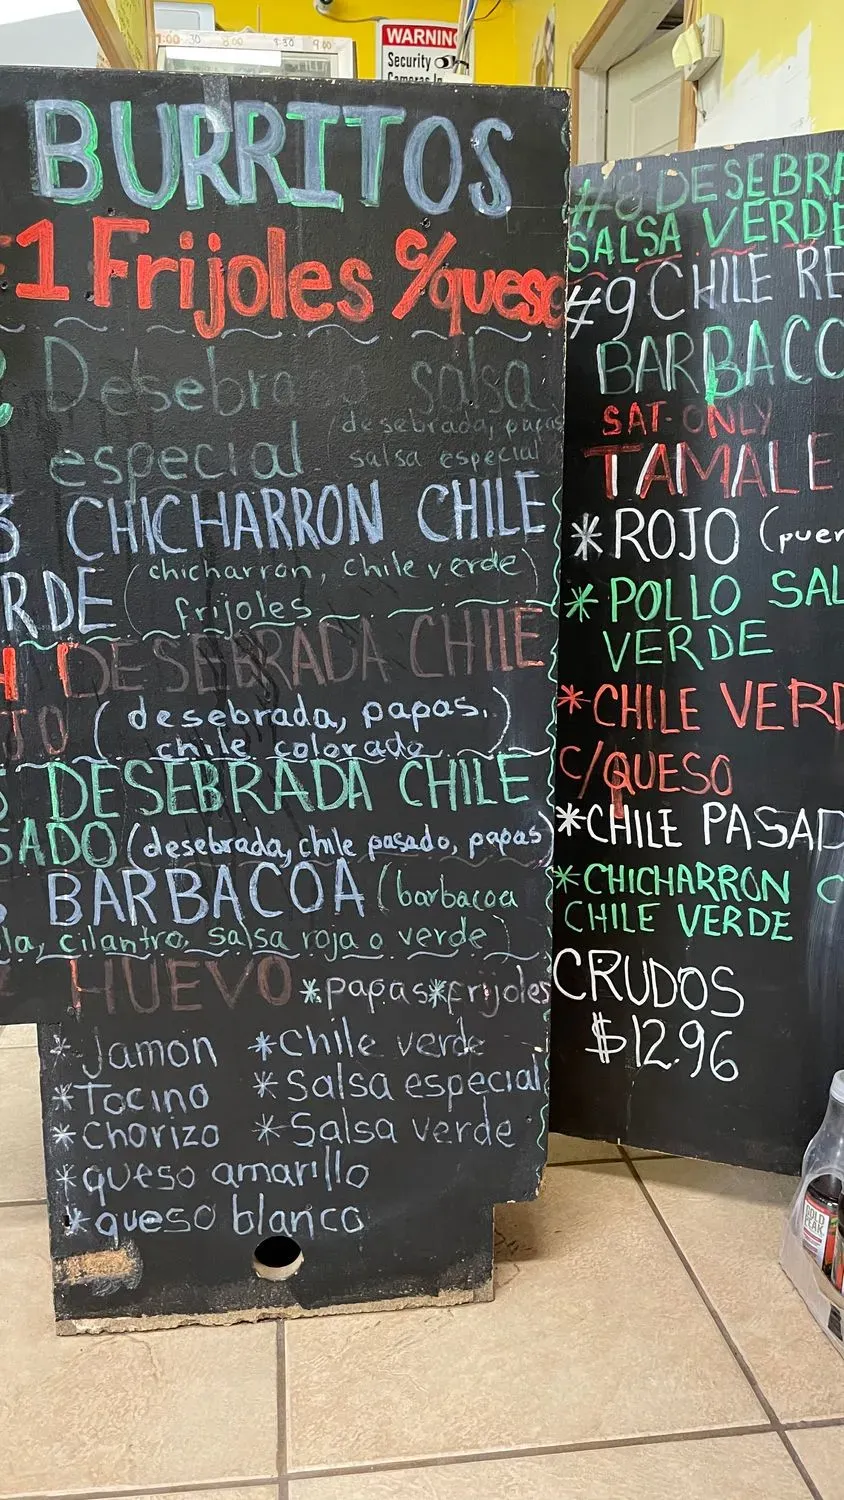 WARNING
Security
Cameras In
BURRITOS
#1 Frijoles c/queso
Desebra a salsa
especial
desebrada, papas
salsa especial
3 CHICHARRON CHILE
RDE (chicharron, chile verde)
frijoles
DESEBRADA CHILE
JO (desebrada, papas,)
chile colorado
5 DESEBRADA CHILE
SADO (desebrada, chile pasado, papas)
BARBACOA (barbacoa
la, cilantro, salsa roja o verde)
HUEVO *papas *frijoles
* Jamon *Chile verde
*Tocino *Salsa especial
*Chorizo *Salsa verde
*queso amarillo
*queso blanco
#8 DESEBRA
SALSA VERDE
#9 CHILE RE
BARBACO
SAT-ONLY
TAMALE
*ROJO (puer
*POLLO SAL
VERDE
*CHILE VERD
C/QUESO
*CHILE PASAD
*CHICHARRON C
CHILE VERDE
CRUDOS
$12.96
GOLD
PEAK